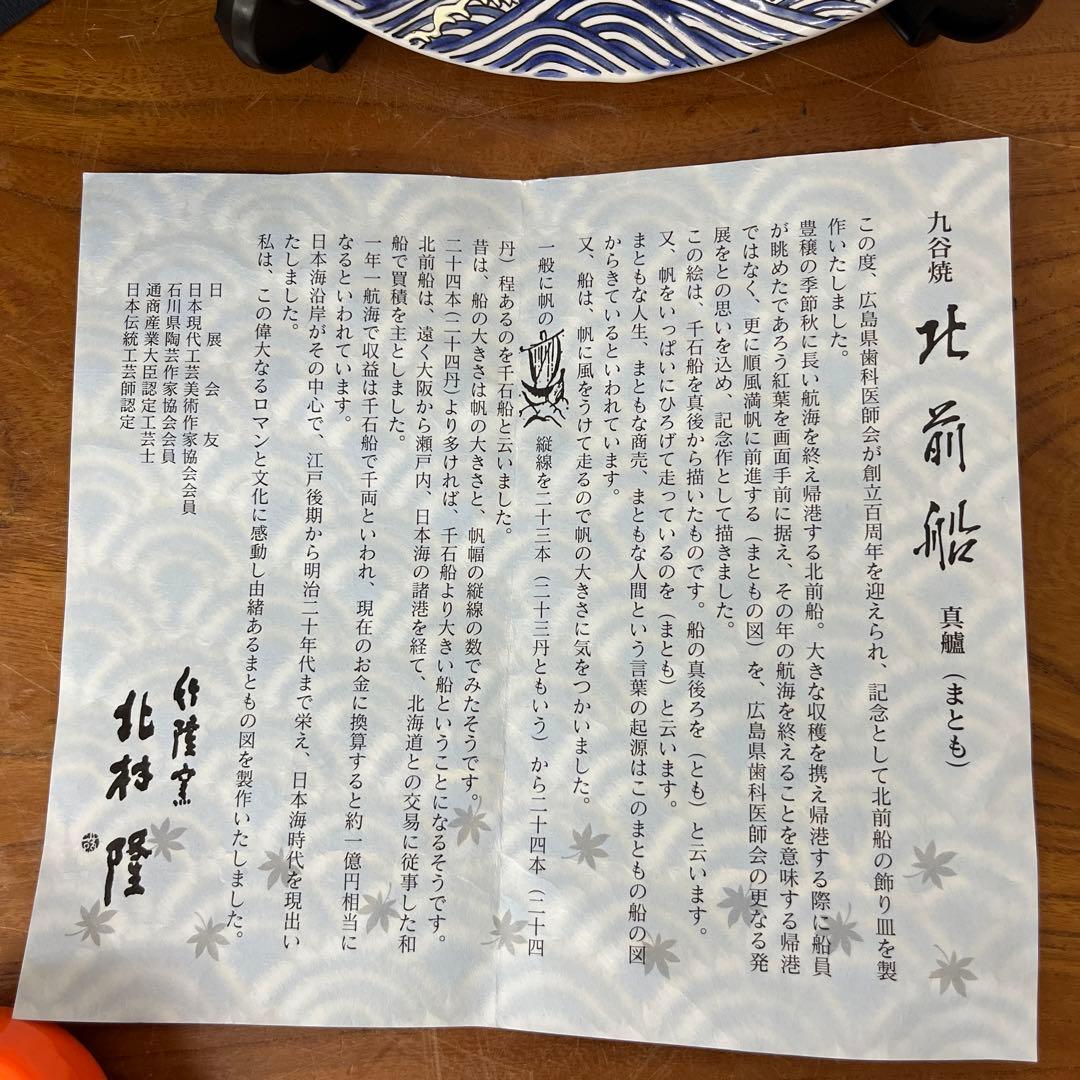 九谷焼 北前船 真艫(まとも)
この度、広島県歯科医師会が創立百周年を迎えられ、記念として北前船の飾り皿を製
作いたしました。
豊穣の季節秋に長い航海を終え帰港する北前船。大きな収穫を携え帰港する際に船員
が眺めたであろう紅葉を画面手前に据え、その年の航海を終えることを意味する帰港
ではなく、更に順風満帆に前進する(まともの図)を、広島県歯科医師会の更なる発
展をとの思いを込め、記念作として描きました。
この絵は、千石船を真後から描いたものです。船の真後ろを(とも)と云います。
又、帆をいっぱいにひろげて走っているのを(まとも)と云います。
まともな人生、まともな商売、まともな人間という言葉の起源はこのまともの船の図
からきているといわれています。
又、船は、帆に風をうけて走るので帆の大きさに気をつかいました。
一般に帆の 縦線を二十三本(二十三丹ともいう)から二十四本(二十四
丹)程あるのを千石船と云いました。
昔は、船の大きさは帆の大きさと、帆幅の縦線の数でみたそうです。
二十四本(二十四丹)より多ければ、千石船より大きい船ということになるそうです。
北前船は、遠く大阪から瀬戸内、日本海の諸港を経て、北海道との交易に従事した和
船で買積を主としました。
一年一航海で収益は千石船で千両といわれ、現在のお金に換算すると約一億円相当に
なるといわれています。
日本海沿岸がその中心で、江戸後期から明治二十年代まで栄え、日本海時代を現出い
たしました。
私は、この偉大なるロマンと文化に感動し由緒あるまともの図を製作いたしました。
日展会友
日本現代工芸美術作家協会会員
石川県陶芸作家協会会員
通商産業大臣認定工芸士
日本伝統工芸師認定
作陸窯
北村隆